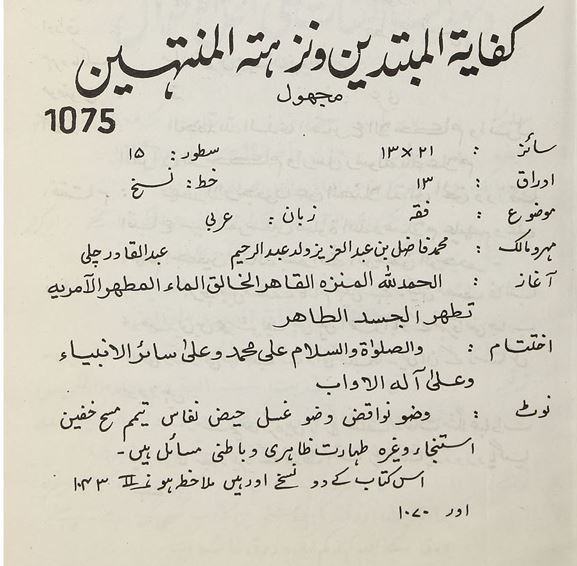 کفایة المبتدین و نزهته المنتهین
مجهول
1075
سائز : ۲۱×۱۳ سطور : ۱۵
اوراق : ۱۳ خط : نسخ
موضوع : فقه زبان : عربی
مہرومالک : محمد فاضل بن عبدالعزیز ولد عبدالرحیم عبدالقادر چلی
آغاز : الحمدلله المنزه القاهر الخالق الماء المطهر الآمربه
تطهر الجسد الطاهر
اختتام : والصلواة والسلام علی محمد وعلی سائر الانبیاء
وعلیٰ آله الاواب
نوٹ : وضو نواقض وضو غسل حیض نفاس تیمم مسح خفین
استنجاء وغیرہ طہارت ظاہری و باطنی مسائل ہیں۔
اس کتاب کے دو نسخے اور ہیں ملاحظہ ہو نمبر II ۱۰۴۳
اور ۱۰۷۰